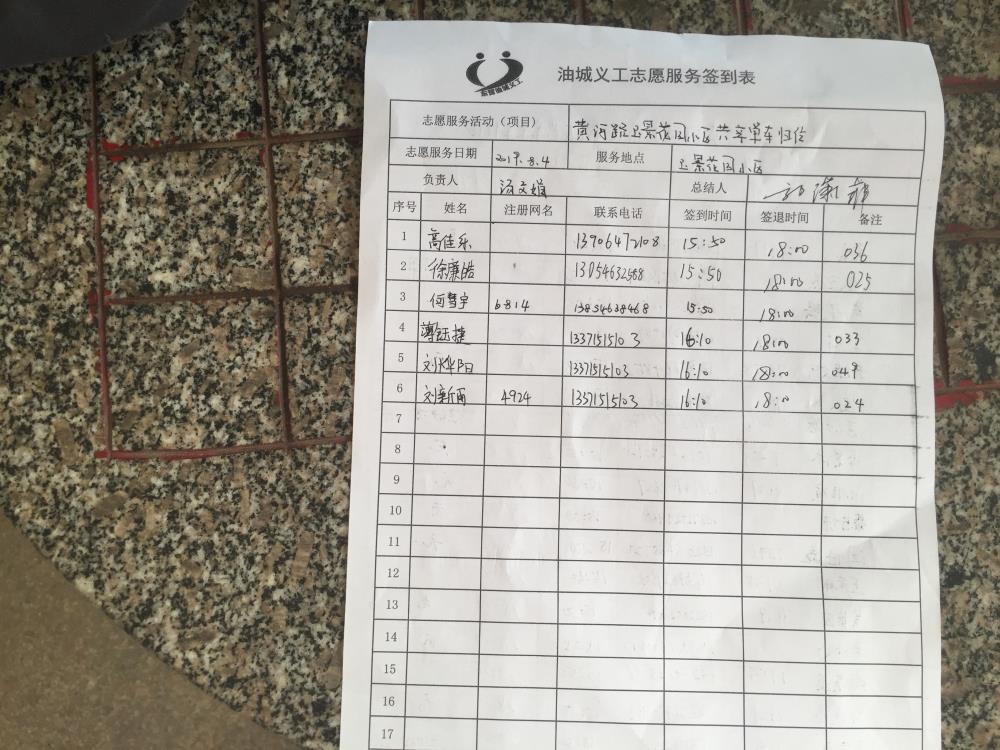 油城义工志愿服务签到表
志愿服务活动（项目） 黄河路玉景花园小区共享单车归位
志愿服务日期 2019.8.4 服务地点 玉景花园小区
负责人 总结人
序号 姓名 注册网名 联系电话 签到时间 签退时间 备注
1 高佳乐 13906472108 15:50 18:00 036
2 徐廉皓 13054632568 15:50 18:00 025
3 何慧宇 6814 13854638468 15:50 18:00
4 13371515103 16:10 18:00 033
5 刘烨阳 13371515103 16:10 18:00 049
6 刘新雨 4924 13371515103 16:10 18:00 024
7
8
9
10
11
12
13
14
15
16
17